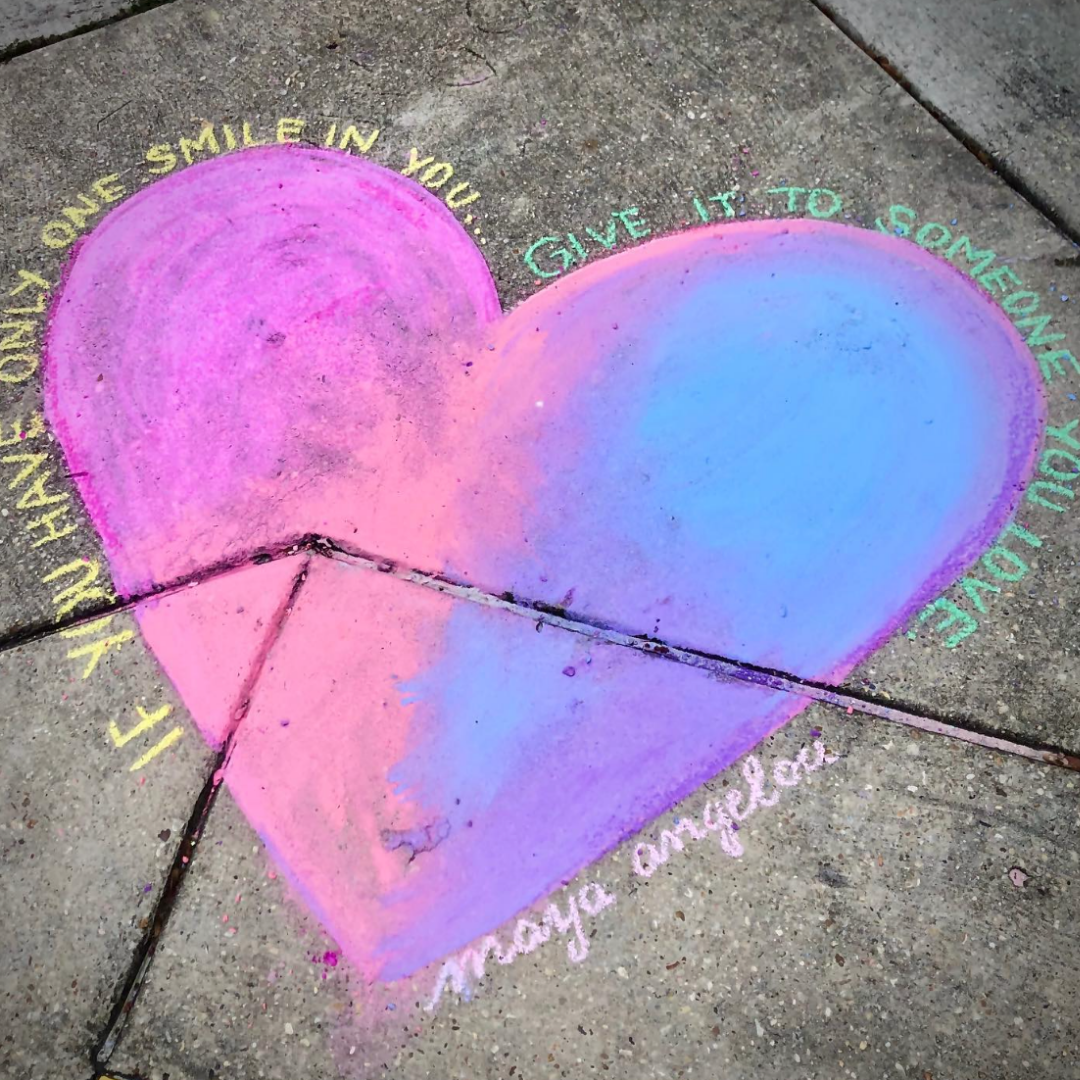 IF YOU HAVE ONLY ONE SMILE IN YOU,
GIVE IT TO SOMEONE YOU LOVE.
maya angelou